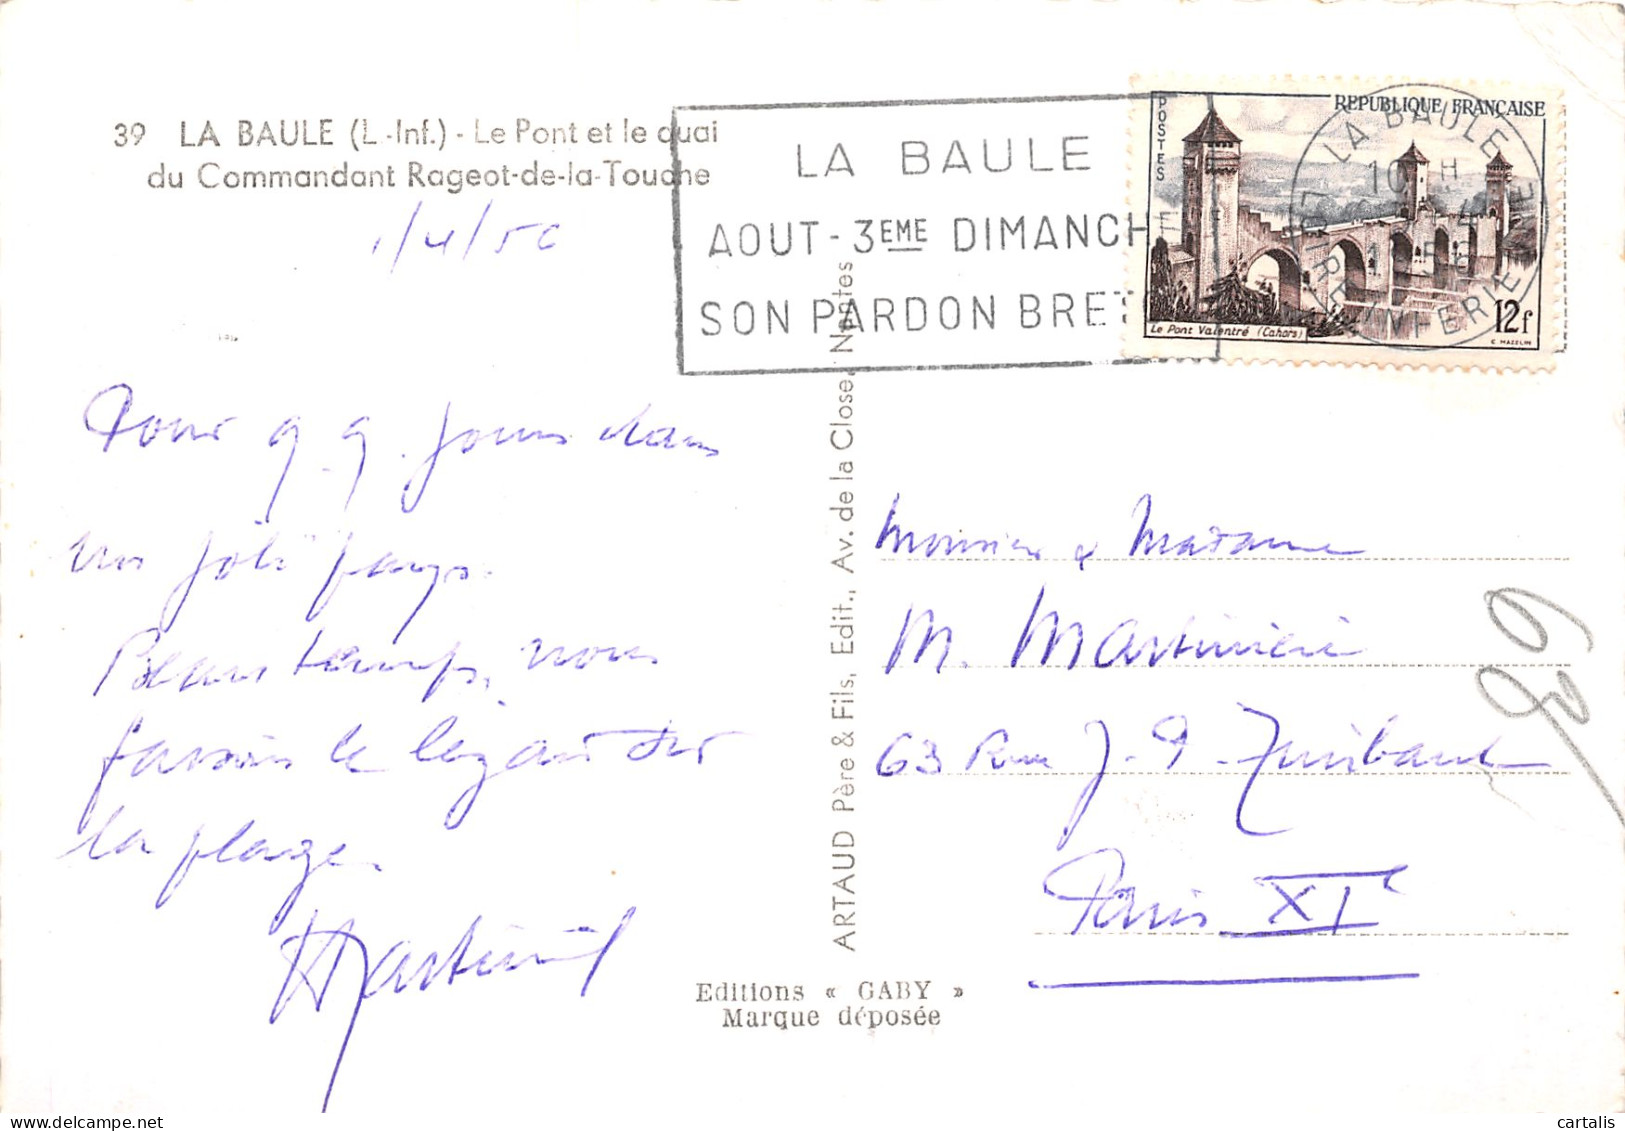 39 LA BAULE (L.-Inf.) - Le Pont et le quai
du Commandant Rageot-de-la-Touche
1/4/56
LA BAULE
AOUT - 3EME DIMANCH
SON PARDON BRET
POSTES
REPUBLIQUE FRANÇAISE
Le Pont Valentré (Cahors)
12f
C. MAZELIN
LA BAULE
10 H
LOIRE INFERIEURE
Pour q.q. jours dans
un joli pays.
Beau temps, nous
faisons le lézard sur
la plage.
ARTAUD Père & Fils, Edit., Av. de la Close, Nantes
Editions « GABY »
Marque déposée
Monsieur & Madame
M. Martinien
63 Rue J. P. Timbaud
Paris XIe
cartalis